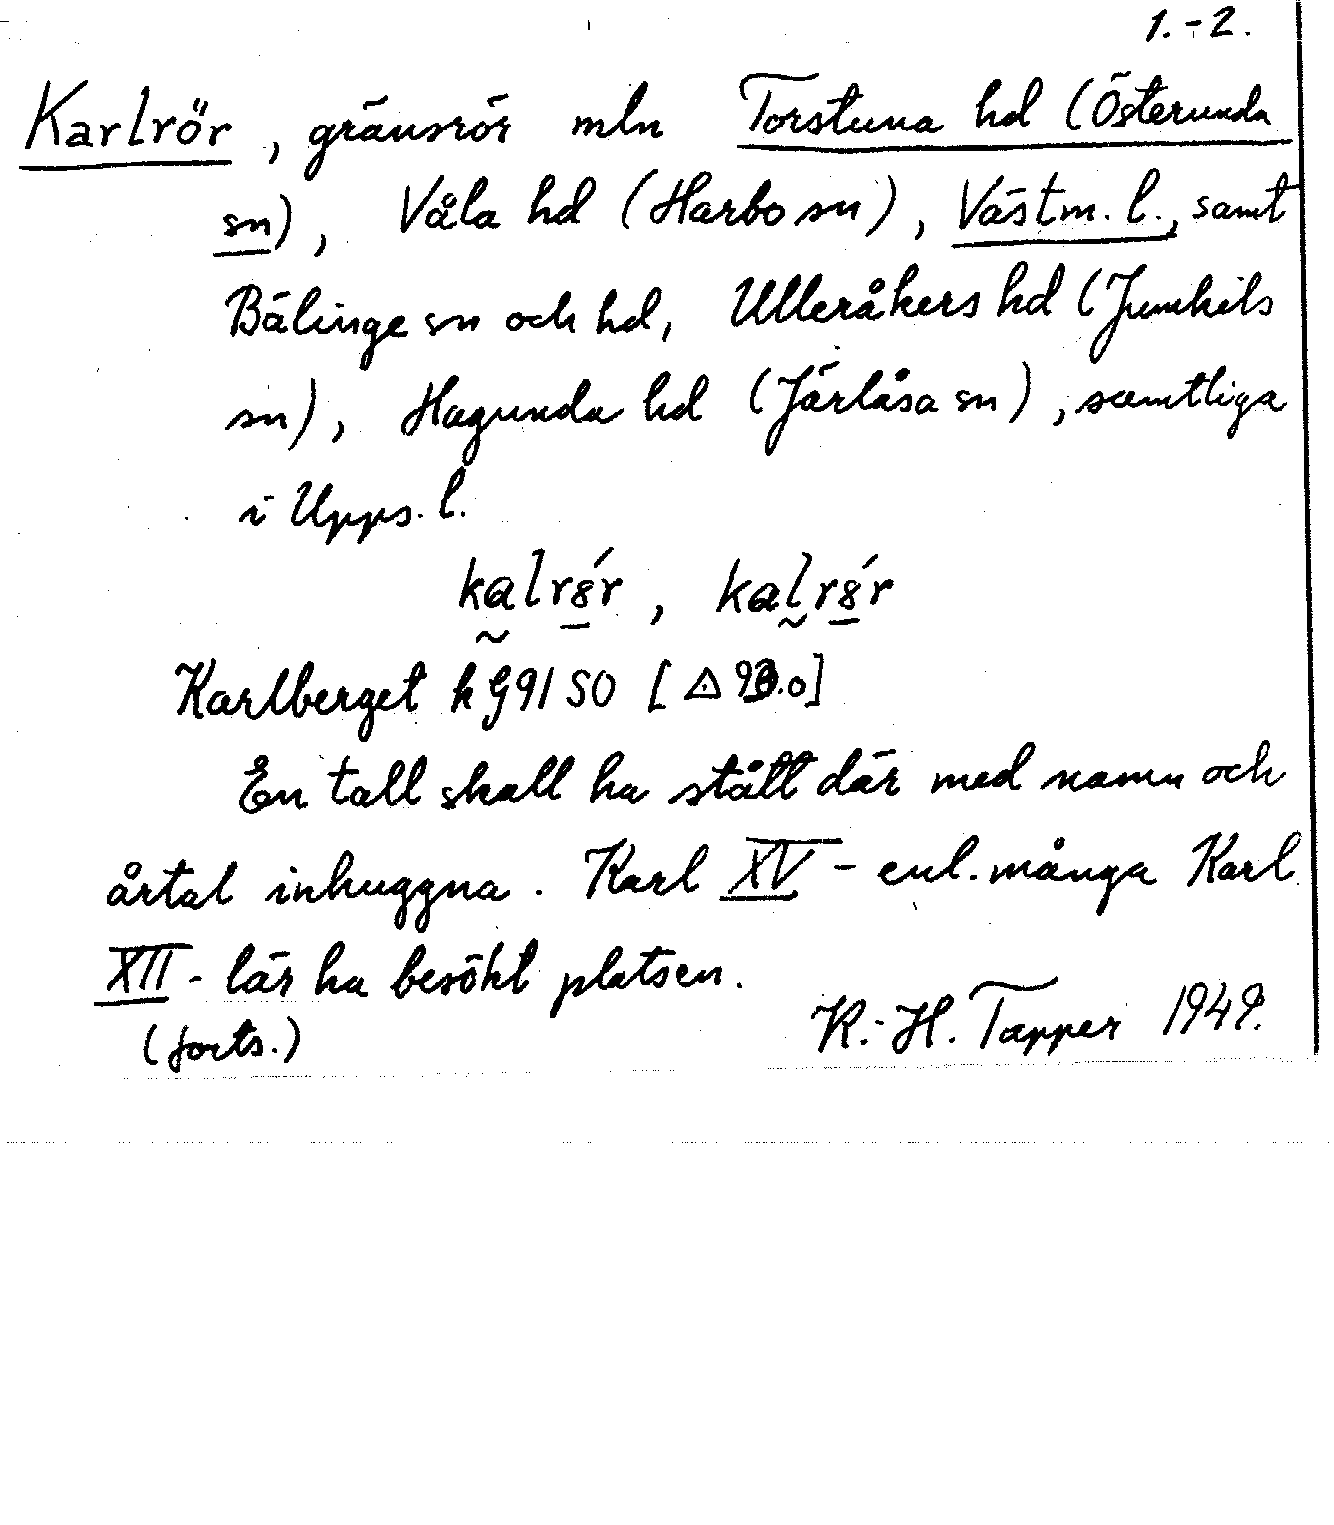 1.-2.
Karlrör, gränsrör mln Torstuna hd (Österunda
sn), Våla hd (Harbo sn), Västm. l., samt
Bälinge sn och hd, Ulleråkers hd (Jumkils
sn), Hagunda hd (Järlåsa sn), samtliga
i Upps. l.
kalrör, kalrör
Karlberget kG91 SO [△ 93.0]
En tall skall ha stått där med namn och
årtal inhuggna. Karl XV - enl. många Karl
XII - lär ha besökt platsen.
(forts.) K.-H. Tapper 1949.